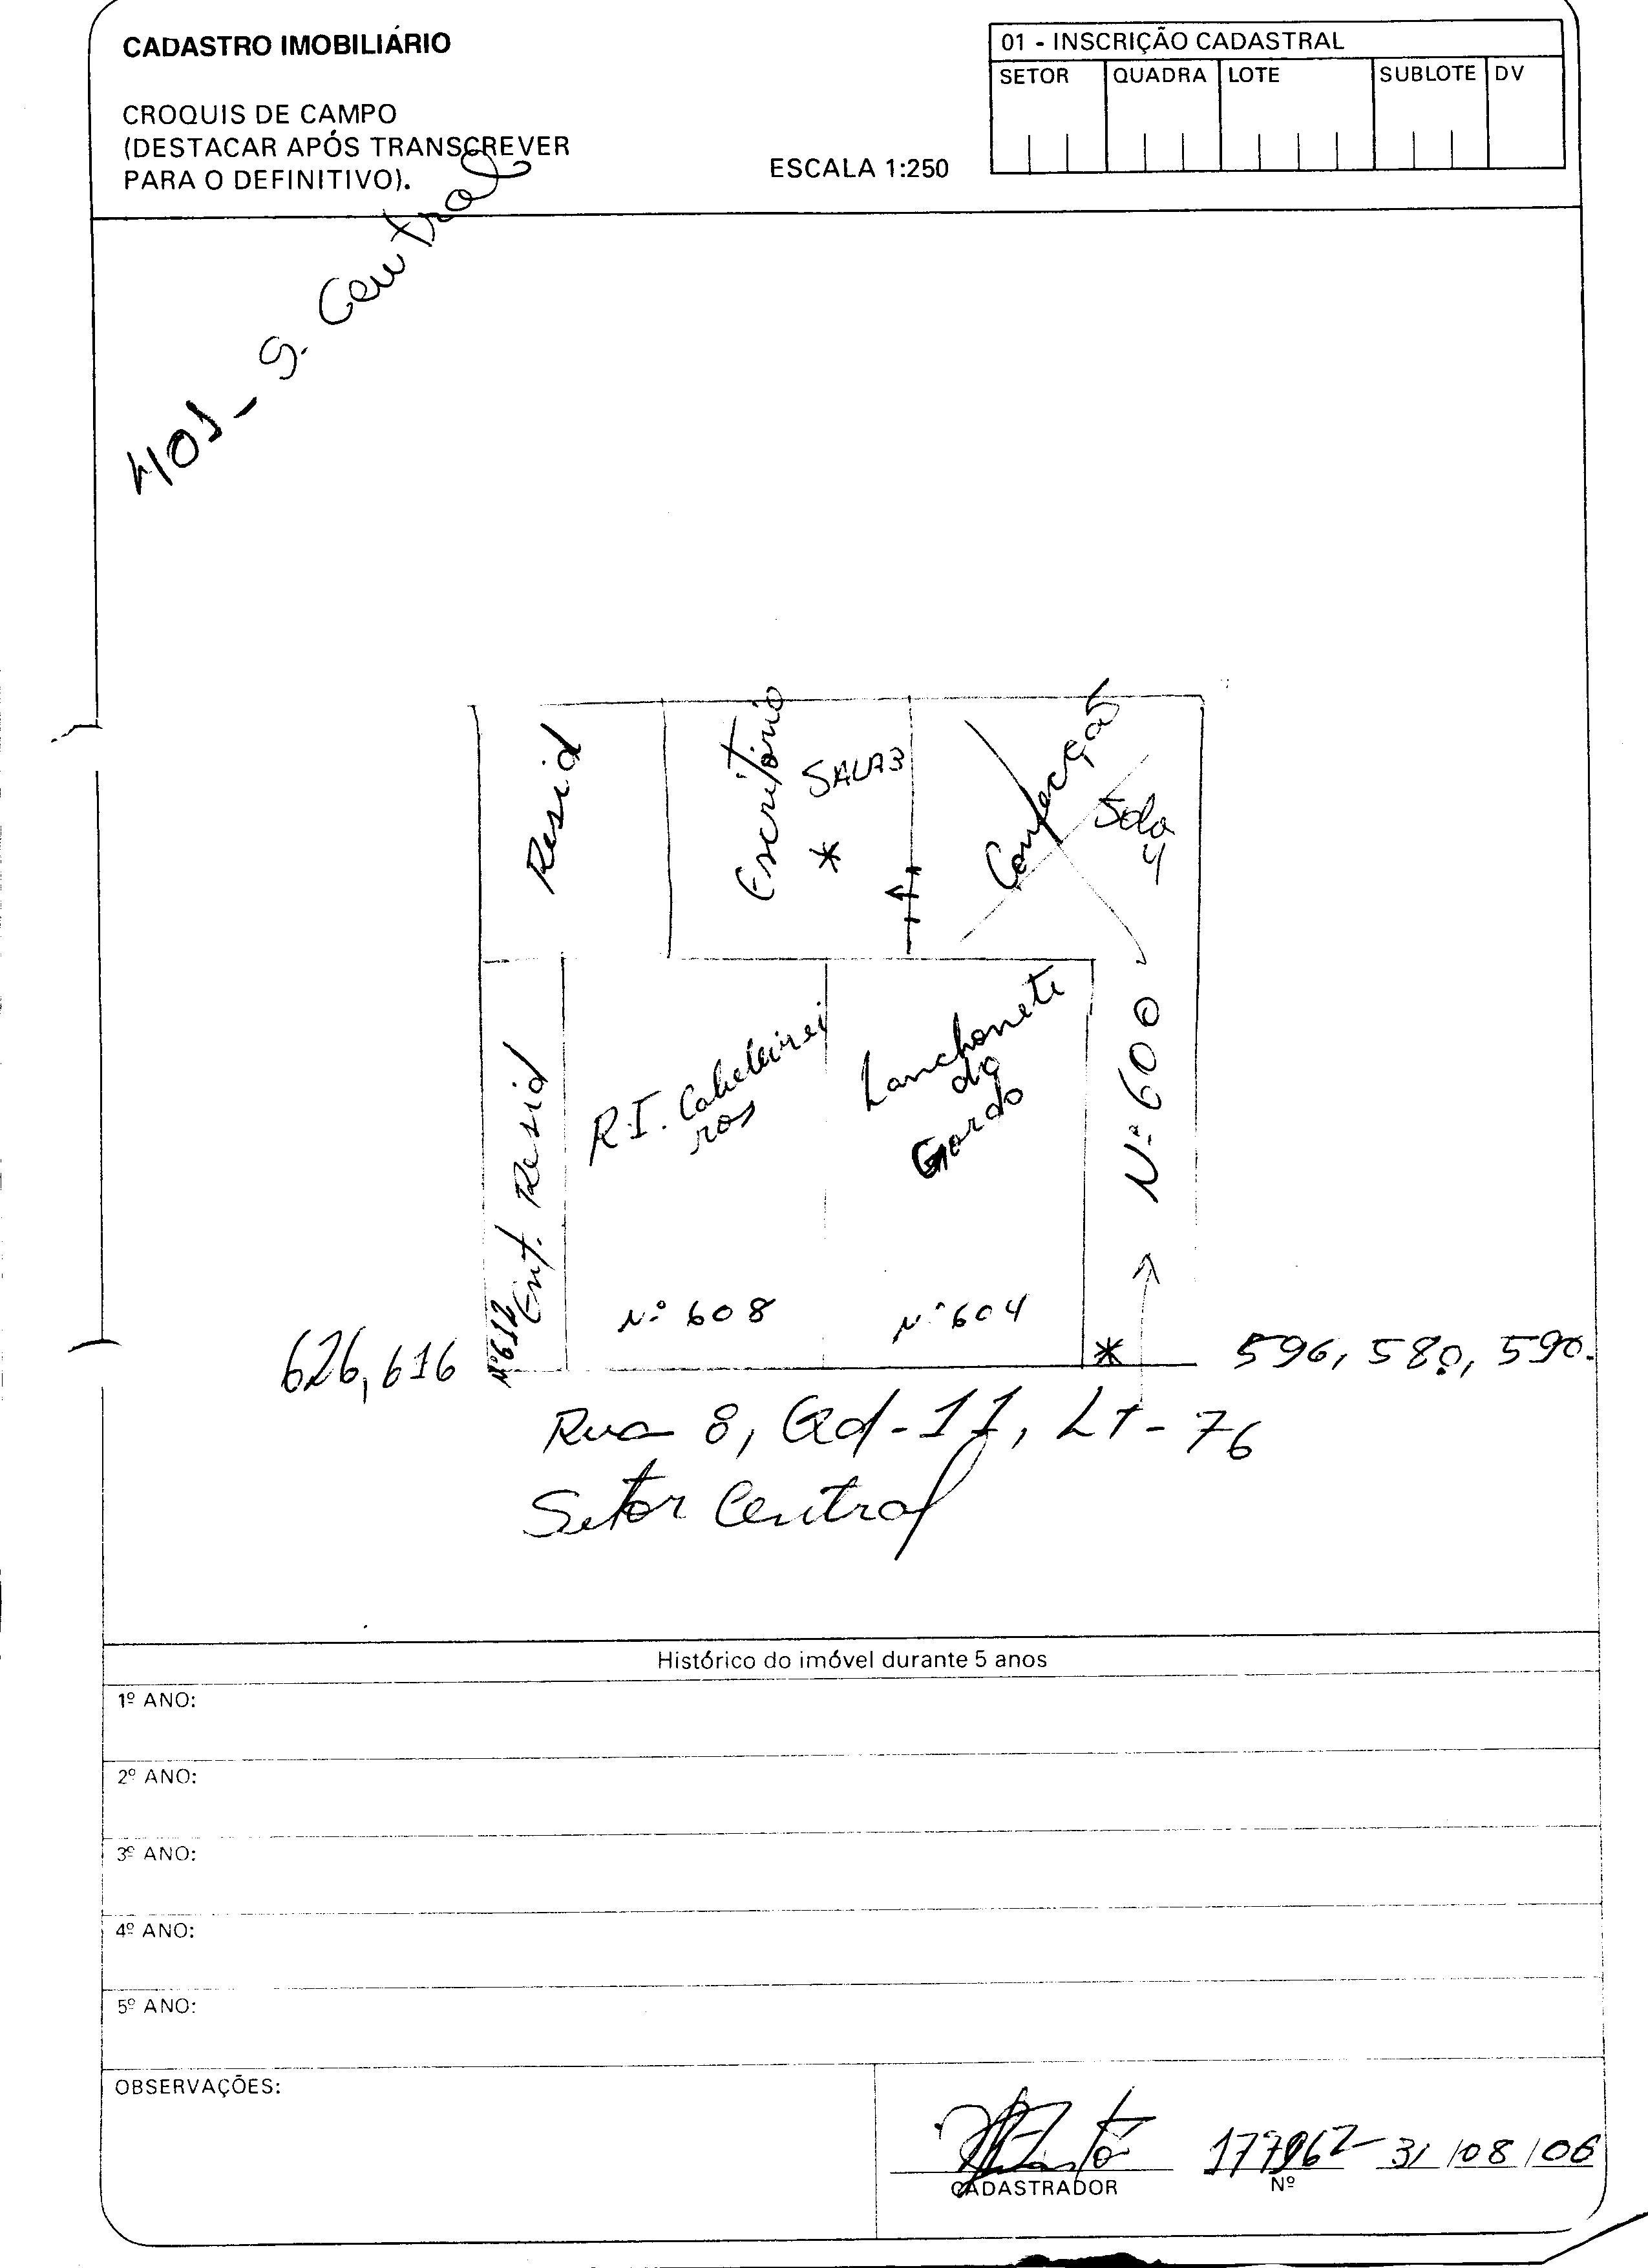 CADASTRO IMOBILIÁRIO
CROQUIS DE CAMPO
(DESTACAR APÓS TRANSCREVER
PARA O DEFINITIVO).
ESCALA 1:250
01 - INSCRIÇÃO CADASTRAL
SETOR QUADRA LOTE SUBLOTE DV
401 - S. Central
Resid
Escritório
SALA 3
*
Confecção
Sala
4
Ent. Resid
R.I. Cabeleirei
ros
Lanchonete
do
Gordo
Nº 600
Nº 612
Nº 608
Nº 604
*
626, 616
596, 580, 590.
Rua 8, Qd - 11, Lt - 76
Setor Central
Histórico do imóvel durante 5 anos
1º ANO:
2º ANO:
3º ANO:
4º ANO:
5º ANO:
OBSERVAÇÕES:
177962 - 31/08/06
CADASTRADOR
Nº